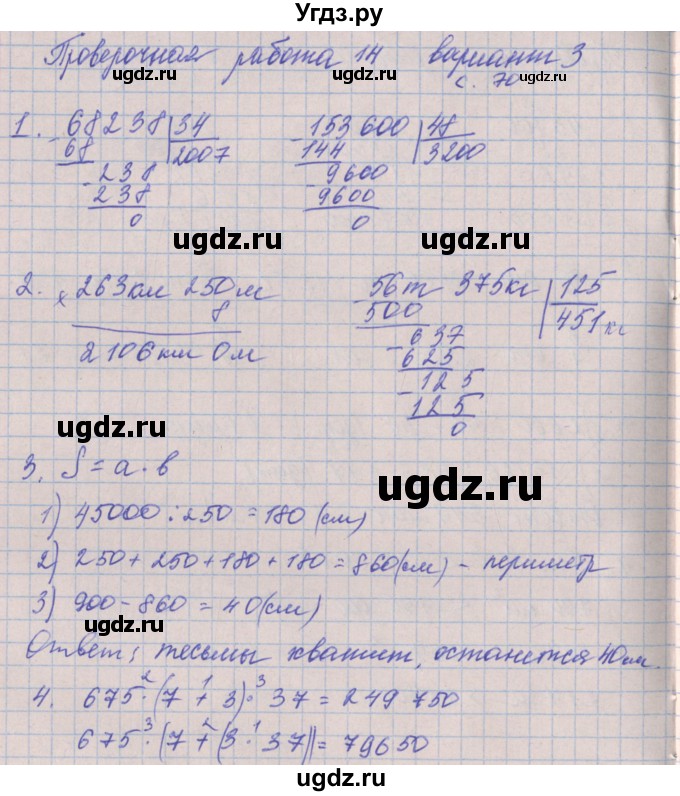 Угдз.ру
Проверочная работа 14 вариант 3
ugdz.ru ugdz.ru с. 70 ugdz.ru
1. 68238 | 34
- 68 2007
- 238
238
0
- 153600 | 48
144 3200
- 9600
9600
0
ugdz.ru ugdz.ru
2. × 263км 250м
8
2106км 0м
- 56т 375кг | 125
500 451кг
- 637
625
- 125
125
0
ugdz.ru
3. S = a · b
ugdz.ru
1) 45000 : 250 = 180 (см)
2) 250 + 250 + 180 + 180 = 860(см) - периметр
3) 900 - 860 = 40(см)
ugdz.ru
Ответ; тесьмы хватит, останется 40см.
4. 675 ·² (7 +¹ 3) ·³ 37 = 249 750
675 ·³ (7 +² (3 ·¹ 37)) = 79650
ugdz.ru ugdz.ru
ugdz.ru